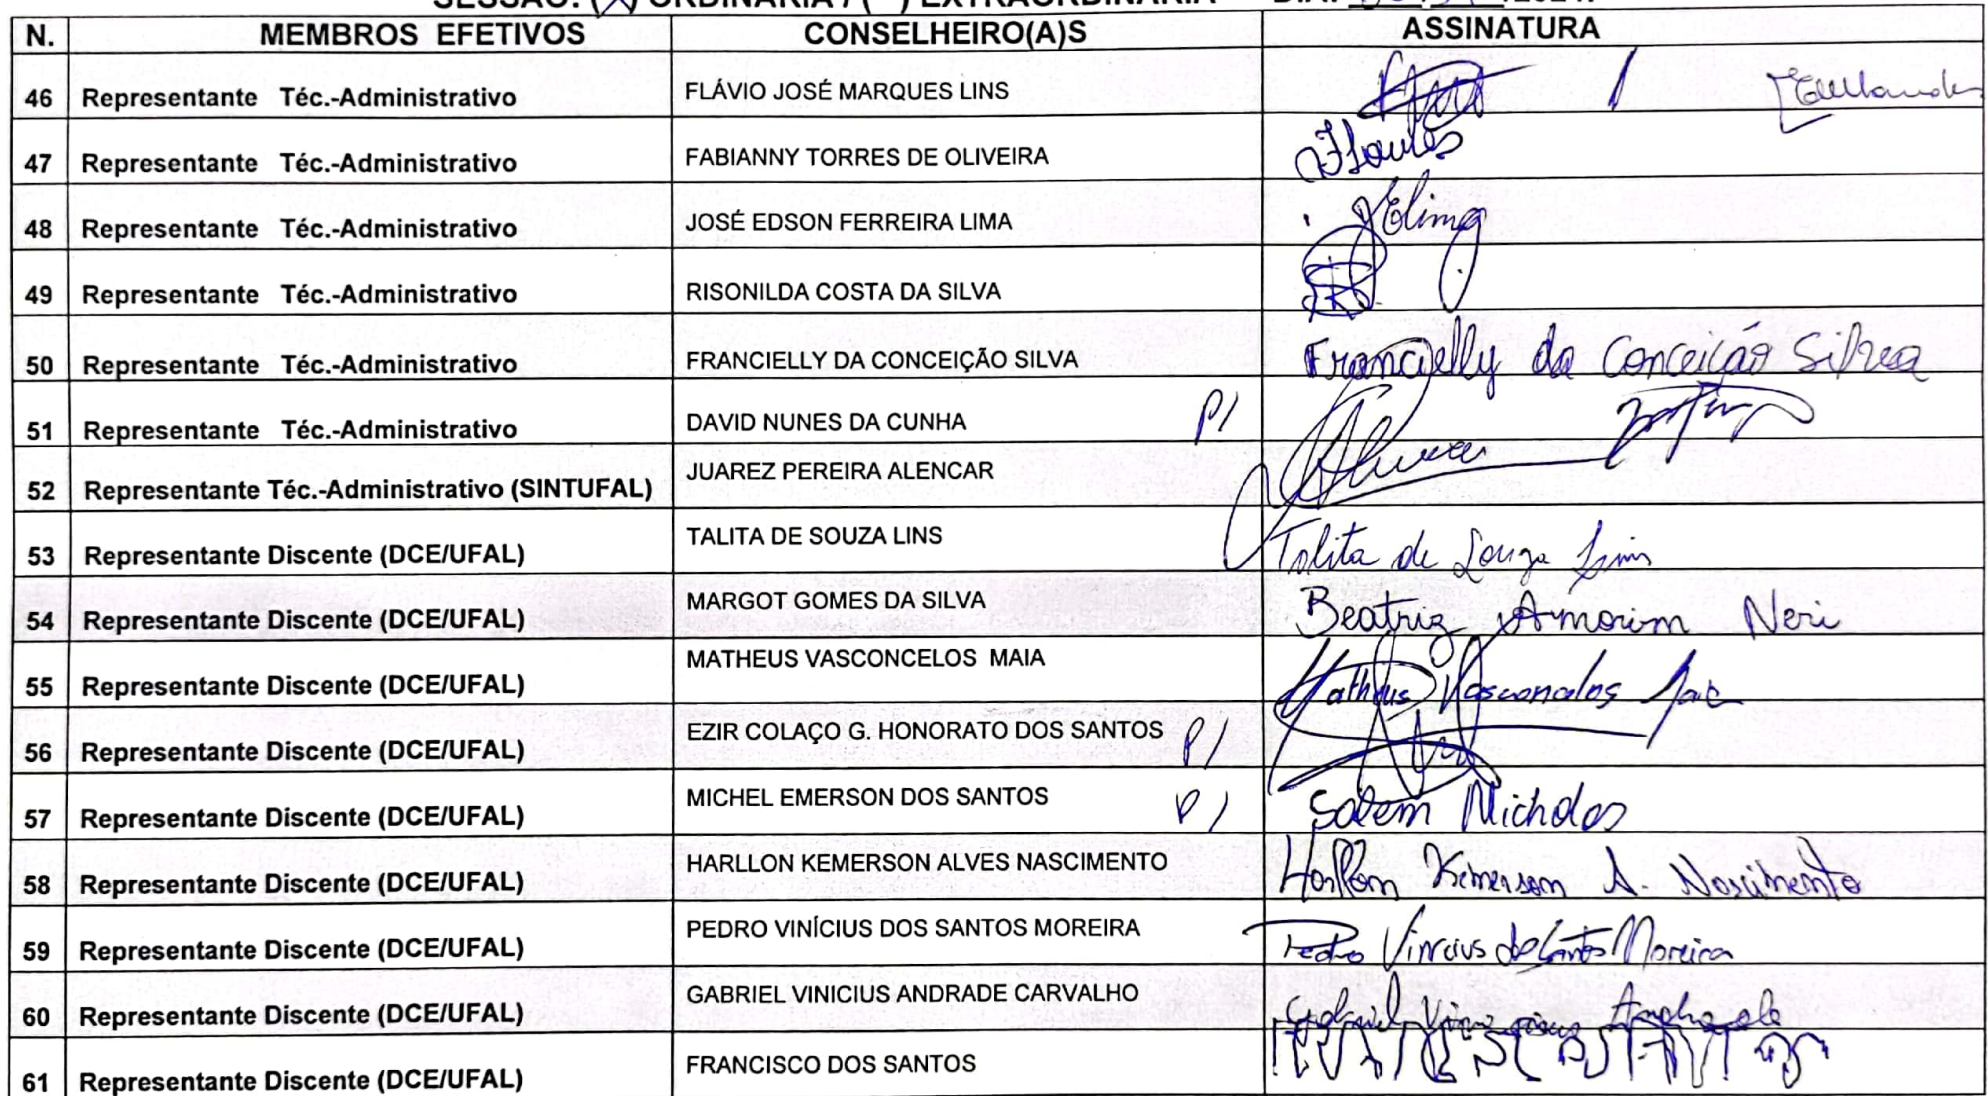 SESSÃO: (X) ORDINÁRIA / ( ) EXTRAORDINÁRIA DIA:
N. MEMBROS EFETIVOS CONSELHEIRO(A)S ASSINATURA
46 Representante Téc.-Administrativo FLÁVIO JOSÉ MARQUES LINS
47 Representante Téc.-Administrativo FABIANNY TORRES DE OLIVEIRA
48 Representante Téc.-Administrativo JOSÉ EDSON FERREIRA LIMA
49 Representante Téc.-Administrativo RISONILDA COSTA DA SILVA
50 Representante Téc.-Administrativo FRANCIELLY DA CONCEIÇÃO SILVA Francielly da Conceição Silva
51 Representante Téc.-Administrativo DAVID NUNES DA CUNHA P/
52 Representante Téc.-Administrativo (SINTUFAL) JUAREZ PEREIRA ALENCAR
53 Representante Discente (DCE/UFAL) TALITA DE SOUZA LINS Talita de Souza Lins
54 Representante Discente (DCE/UFAL) MARGOT GOMES DA SILVA Beatriz Amorim Neri
55 Representante Discente (DCE/UFAL) MATHEUS VASCONCELOS MAIA Matheus Vasconcelos Maia
56 Representante Discente (DCE/UFAL) EZIR COLAÇO G. HONORATO DOS SANTOS P/
57 Representante Discente (DCE/UFAL) MICHEL EMERSON DOS SANTOS P/ Salem Nicholas
58 Representante Discente (DCE/UFAL) HARLLON KEMERSON ALVES NASCIMENTO Harllon Kemerson A. Nascimento
59 Representante Discente (DCE/UFAL) PEDRO VINÍCIUS DOS SANTOS MOREIRA Pedro Vinícius dos Santos Moreira
60 Representante Discente (DCE/UFAL) GABRIEL VINICIUS ANDRADE CARVALHO Gabriel Vinicius Andrade
61 Representante Discente (DCE/UFAL) FRANCISCO DOS SANTOS